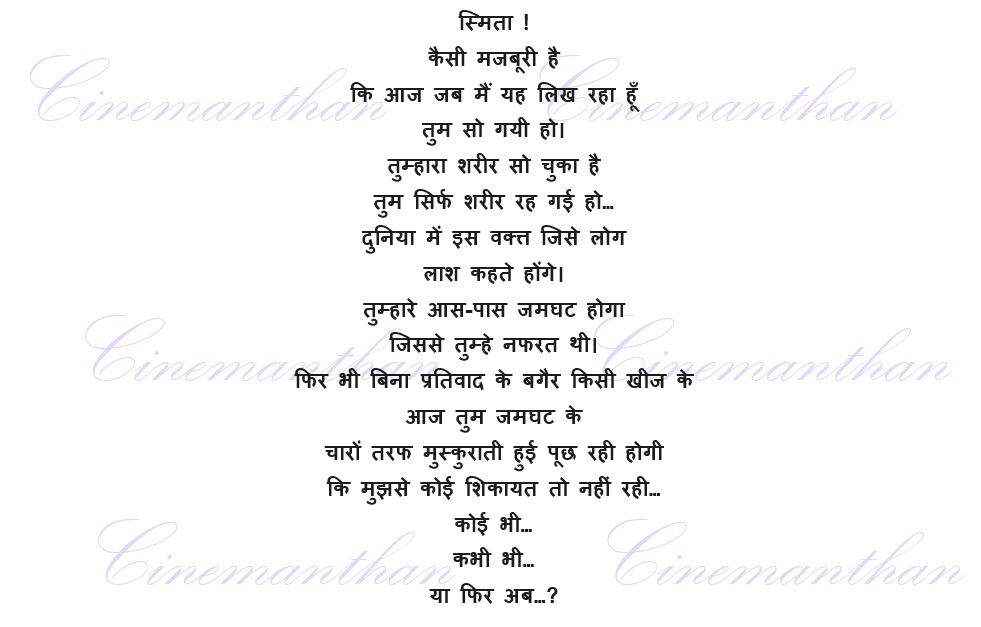 स्मिता !
कैसी मजबूरी है
कि आज जब मैं यह लिख रहा हूँ
तुम सो गयी हो।
तुम्हारा शरीर सो चुका है
तुम सिर्फ शरीर रह गई हो...
दुनिया में इस वक्त जिसे लोग
लाश कहते होंगे।
तुम्हारे आस-पास जमघट होगा
जिससे तुम्हे नफरत थी।
फिर भी बिना प्रतिवाद के बगैर किसी खीज के
आज तुम जमघट के
चारों तरफ मुस्कुराती हुई पूछ रही होगी
कि मुझसे कोई शिकायत तो नहीं रही...
कोई भी...
कभी भी...
या फिर अब...?
Cinemanthan Cinemanthan
Cinemanthan Cinemanthan
Cinemanthan Cinemanthan